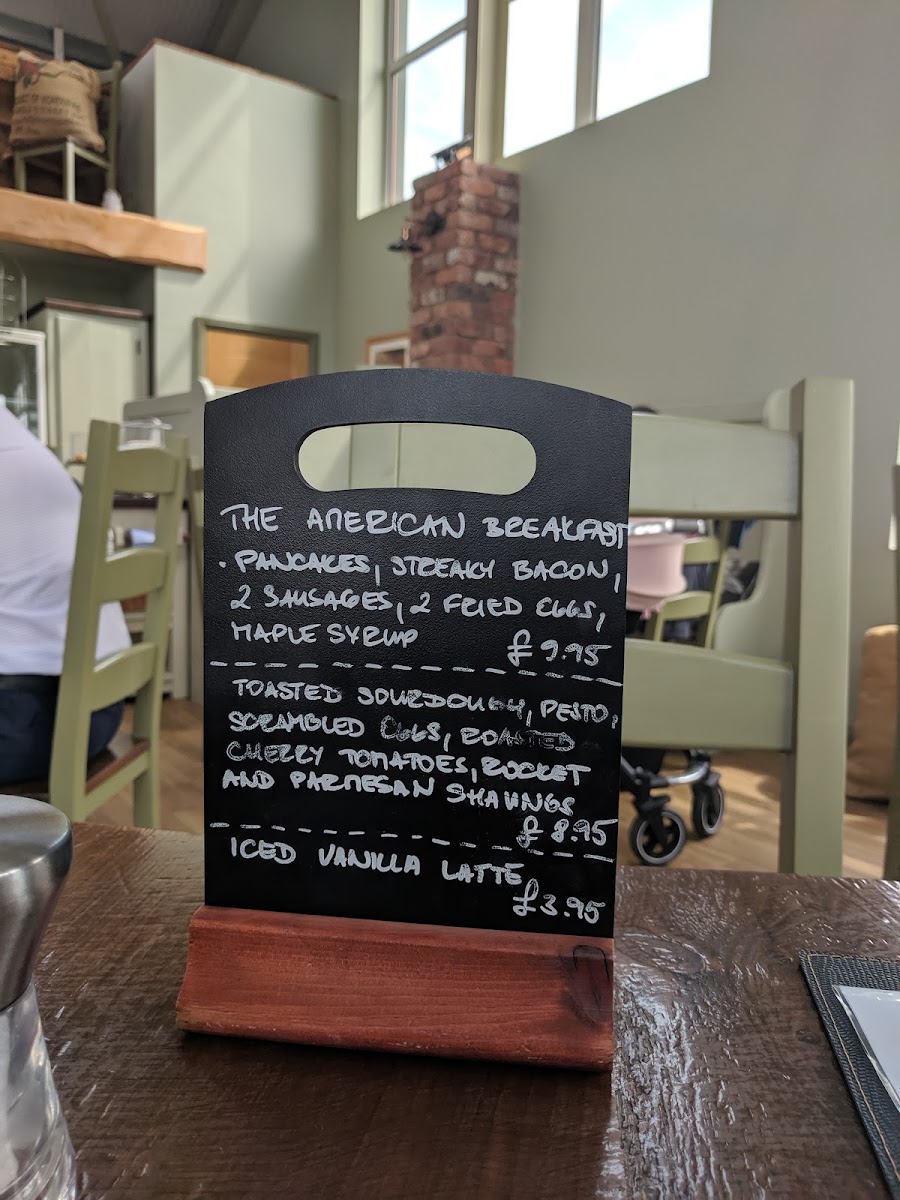 THE AMERICAN BREAKFAST
· PANCAKES, STREAKY BACON,
2 SAUSAGES, 2 FRIED EGGS,
MAPLE SYRUP £9.95
TOASTED SOURDOUGH, PESTO,
SCRAMBLED EGGS, ROASTED
CHERRY TOMATOES, ROCKET
AND PARMESAN SHAVINGS
£8.95
ICED VANILLA LATTE
£3.95